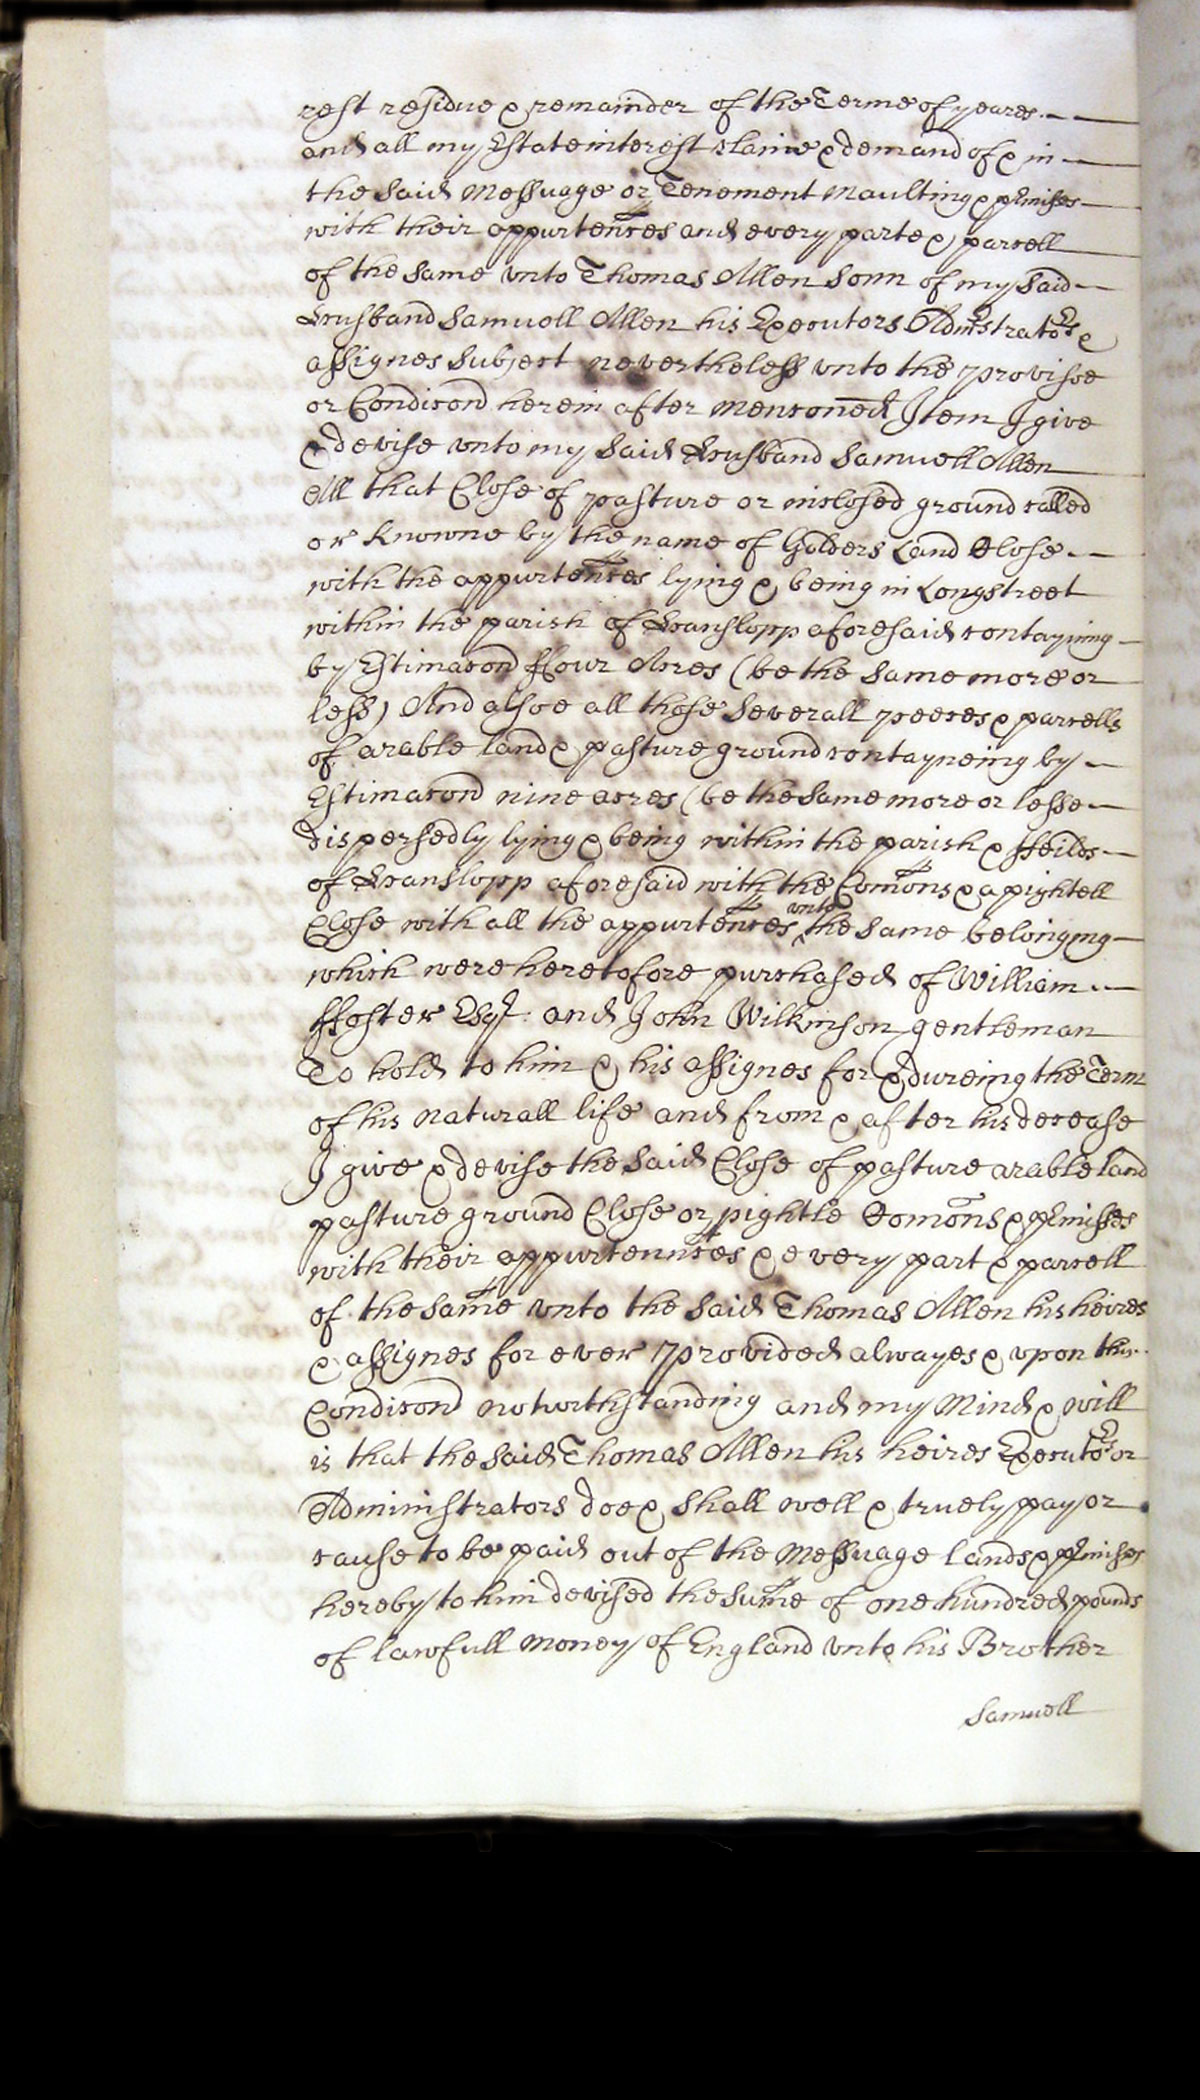 rest residue & remainder of the Terme of yeares
and all my Estate interest claime & demand of & in
the said Messuage or Tenement Maulting & p̱misses
with their appurtenn̄ces and every parte & parcell
of the same vnto Thomas Allen Sonn of my said
Husband Samuell Allen his Executors Admstrators &
assignes Subject nevertheless vnto the provisoe
or Condic̄on herein after menc̄oned Item I give
& devise vnto my said Husband Samuell Allen
All that Close of pasture or inclosed ground called
or knowne by the name of Golders Land Close
with the appurten̄ces lying & being in Longstreet
within the parish of Hanslopp aforesaid contayning
by Estimac̄on ffour Acres (be the same more or
less) And alsoe all those severall peeces & parcells
of arable land & pasture ground contayneing by
Estimac̄on nine acres (be the same more or lesse
dispersedly lying & being within the parish & ffeilds
of Hanslopp aforesaid with the Com̄ons & a pightell
Close with all the appurten̄ces vnto the same belonging
which were heretofore purchased of William
ffoster Esqr and John Wilkinson gentleman
To hold to him & his assignes for & dureing the Term
of his naturall life and from & after his decease
I give & devise the said Close of pasture arable land
pasture ground Close or pightle Com̄ons & p̱misses
with their appurtenn̄ces & every part & parcell
of the same vnto the said Thomas Allen his heires
& assignes for ever Provided alwayes & vpon this
Condic̄on notwithstanding and my Mind & will
is that the said Thomas Allen his heires Executors or
Administrators doe & shall well & truely pay or
cause to be paid out of the Messuage lands & p̱misses
hereby to him devised the sum̄e of one hundred pounds
of lawfull money of England vnto his Brother
Samuell